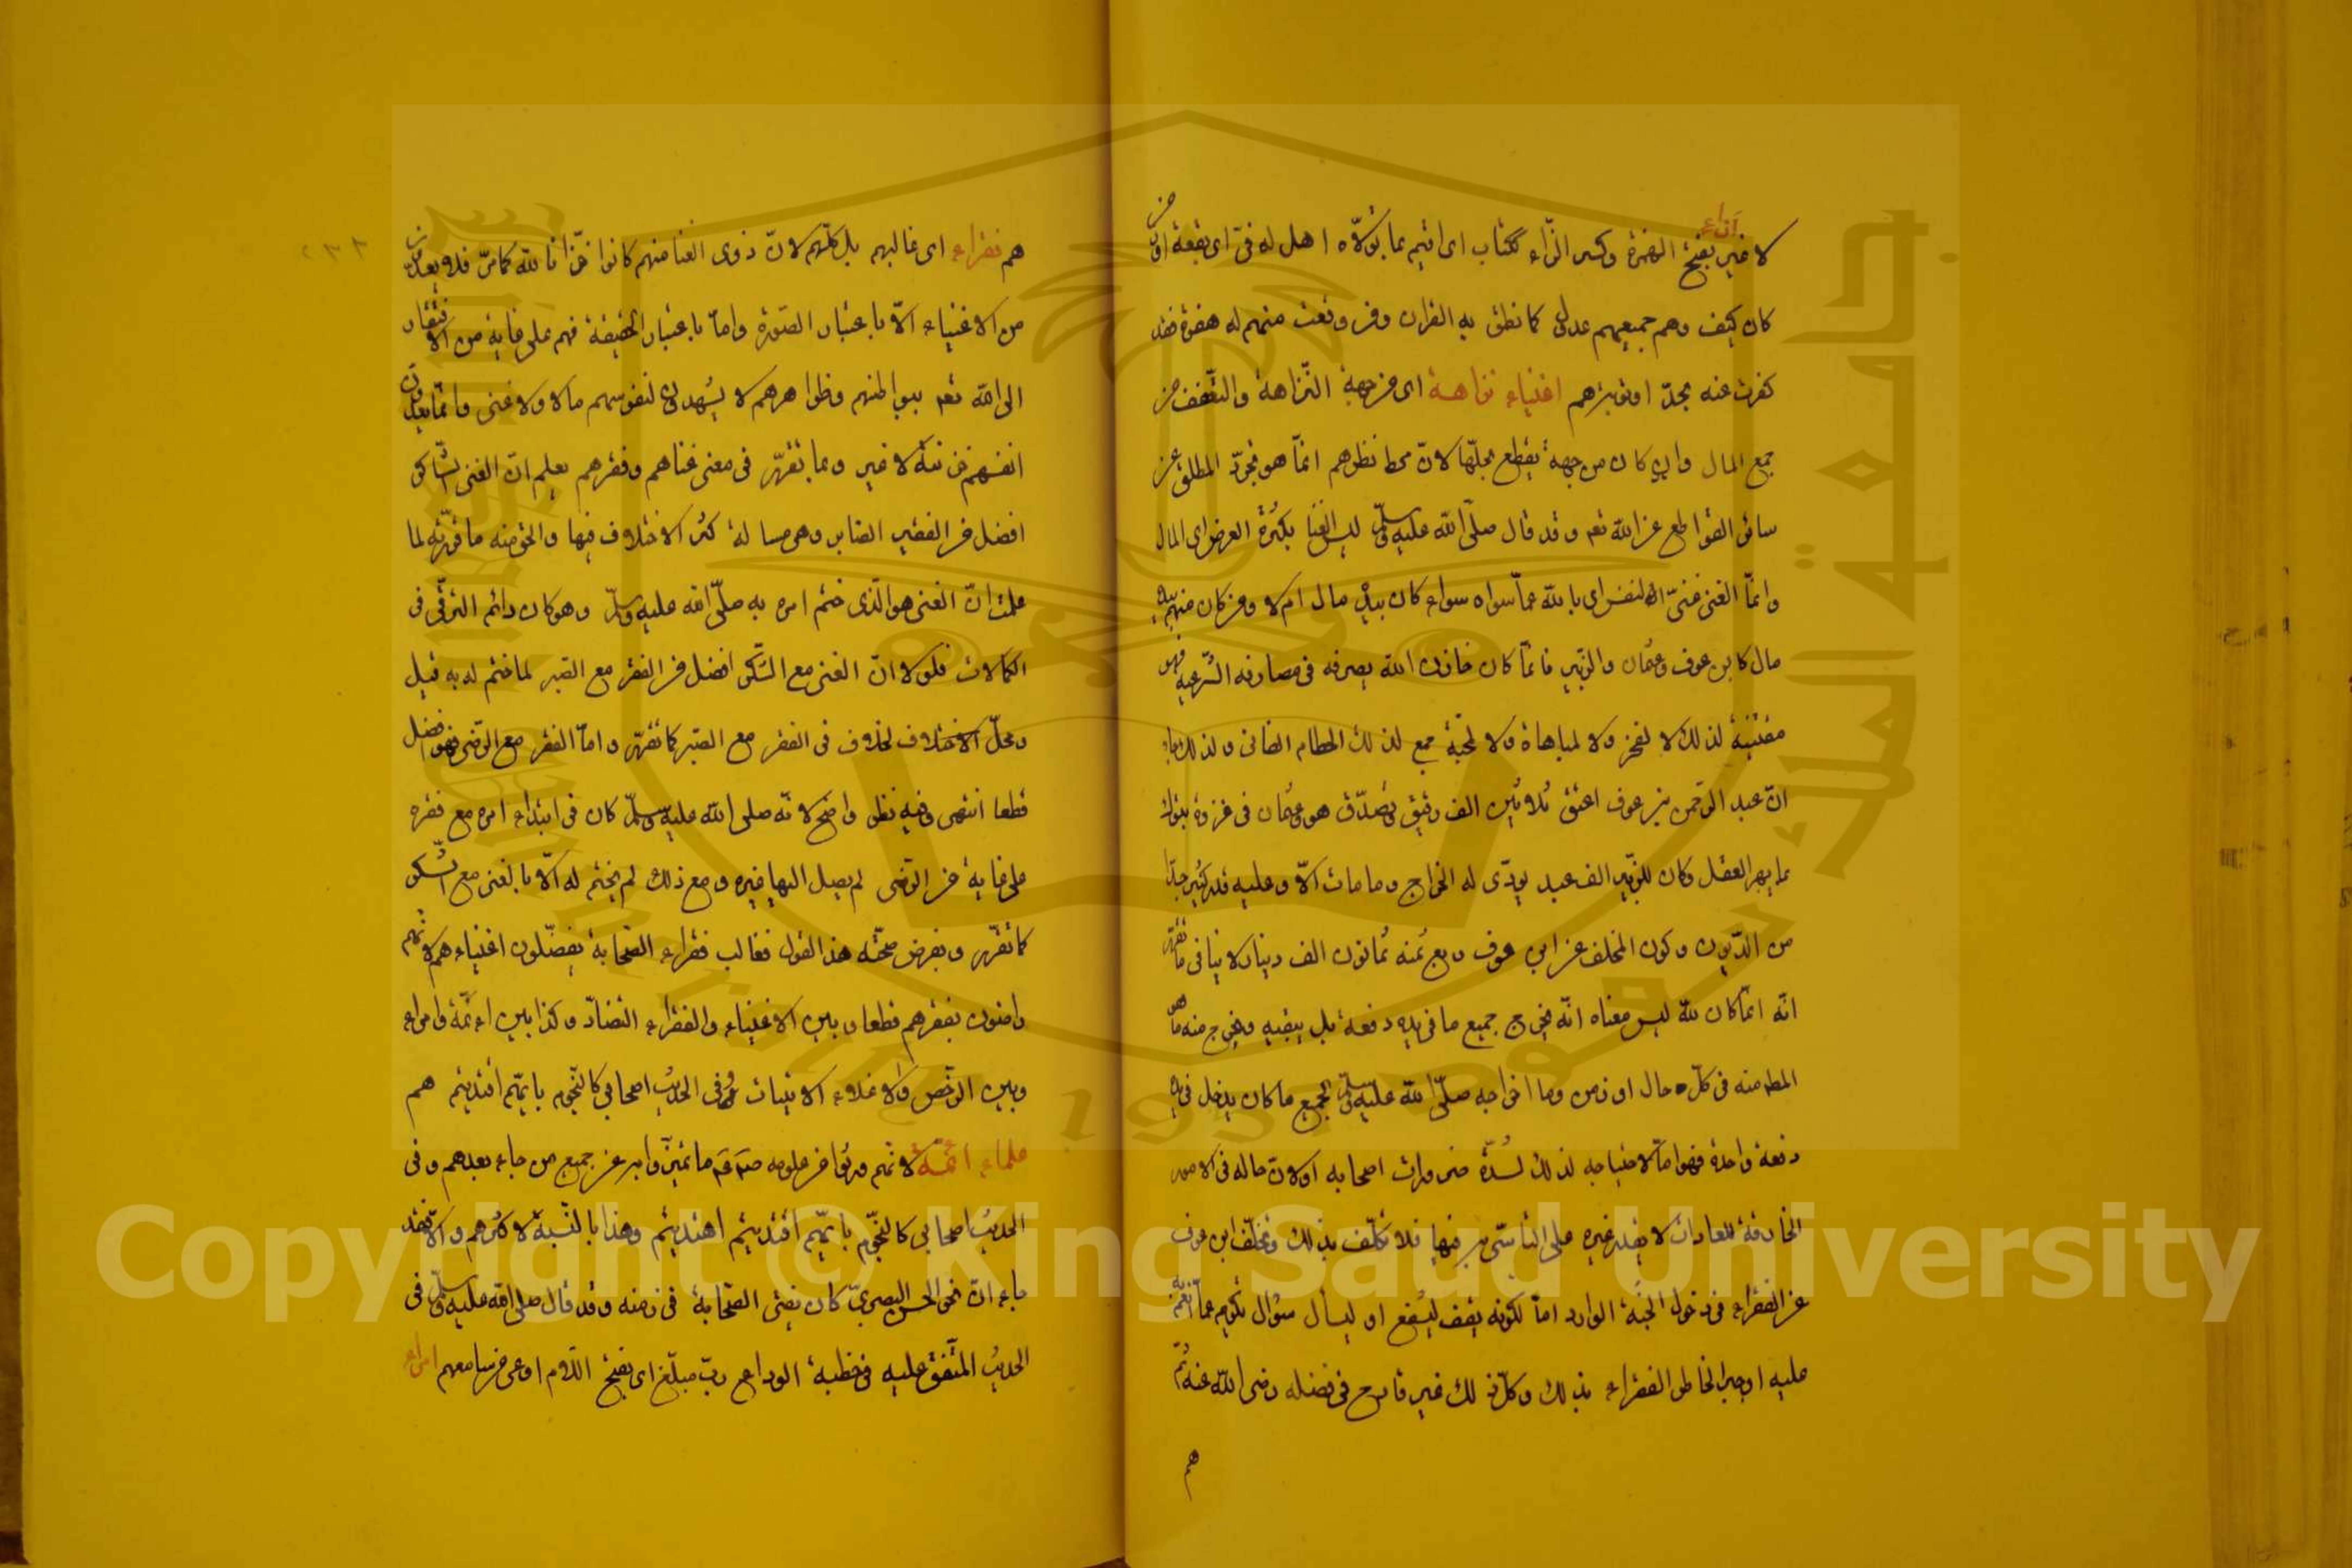 لا غير بفتح الهمزة وكسر الزاء ككتاب اى اتيم بما بولاه اهل له فى اى بقعة او زمن
كان كيف وهم جميعهم عدول كما نطق به القران ومن وقعت منهم له هفوة فقد
كفرت عنه بحد او توبة هم اغنياء نزاهة اى من جهة النزاهة والتعفف من
جمع المال وان كان من جهة يقطع بحلها لان محط نظرهم انما هو تجرد المطلق عن
سائر القواطع عن الله تعه وقد قال صلى الله عليه وسلم ليس الغنا بكثرة العرض اى المال
وانما الغنى غنى النفس اى بالله عما سواه سواء كان بيده مال ام لا ومن كان منهم بيده
مال كابن عوف وعثمان والزبير فانما كان خازن الله يصرفه فى مصارفه الشرعية فهو
مقتنيه لذلك لا لفخر ولا لمباهاة ولا لمحبة جمع لذلك الحطام الفانى ولذلك جاء
ان عبد الرحمن بن عوف اعتق ثلاثين الف رقيق وتصدق هو وعثمان فى غزوة تبوك
بما يبهر العقل وكان للزبير الف عبد يودى له الخراج وما مات الا وعليه قدر كثير جدا
من الديون وكون المخلف عن ابن عوف ربع ثمنه ثمانون الف دينار لا ينافى ما تقرر
انه انما كان لله ليس معناه انه يخرج جميع ما فى يده دفعة بل يبقيه ويخرج منه ما هو
المطه منه فى كل حال او زمن وما اخراجه صلى الله عليه وسلم لجميع ما كان يدخل فى يده
دفعة واحدة فهو اما لاحتياجه لذلك لشدة ضرورات اصحابه او لان حاله فى الامور
الخارقة للعادات لا يقدر غيره على التأسى به فيها فلا تكلف بذلك وتخلف ابن عوف
عن الفقراء فى دخول الجنة الوارد اما لكونه يقف ليشفع او ليسأل سؤال تكريم عما انعم به
عليه او جبرا لخاطر الفقراء بذلك وكل ذلك غير قادح فى فضله رضى الله عنه ثم
هم
هم فقراء اى غالبهم بل كلهم لان ذوى الغنا منهم كانوا خزانا لله كما مر فلا يعدون
من الاغنياء الا باعتبار الصورة واما باعتبار الحقيقة فهم على غاية من الافتقار
الى الله تعه ببواطنهم وظواهرهم لا يشهدون لنفوسهم مالا ولا غنى وانما يعدون
انفسهم خزنة لا غير وبما تقرر فى معنى غناهم وفقرهم يعلم ان الغنى الشاكر
افضل من الفقير الصابر وهى مسالة كثر الاختلاف فيها والحق منه ما قررته لما
علمت ان الغنى هو الذى ختم امره به صلى الله عليه وسلم وهو كان دائم الترقى فى
الكمالات فلولا ان الغنى مع الشكر افضل من الفقر مع الصبر لما ختم له به قيل
ومحل الاختلاف لخلاف فى الفقر مع الصبر كما تقرر واما الفقر مع الرضى فهو افضل
قطعا انتهى وفيه نظر واضح لانه صلى الله عليه وسلم كان فى ابتداء امره مع فقره
على غاية من الرضى لم يصل اليها غيره ومع ذلك لم يختم له الا بالغنى مع الشكر
كما تقرر وبفرض صحة هذا القول فغالب فقراء الصحابة يفضلون اغنياءهم لانهم
راضون بفقرهم قطعا وبين الاغنياء والفقراء التضاد وكذا بين ائمة وامراء
وبين الرخص والاغلاء الاتيات وفى الحديث اصحابى كالنجوم بايهم اقتديتم هم
علماء ائمة لانهم ورثوا من علومه صم عم ما تميزوا به عن جميع من جاء بعدهم وفى
الحديث اصحابى كالنجوم بايهم اقتديتم اهتديتم وهذا بالنسبة لاكثرهم والا فقد
جاء ان نحو الحسن البصرى كان يفتى الصحابة فى زمنه وقد قال صلى الله عليه وسلم فى
الحديث المتفق عليه فى خطبة الوداع رب مبلغ اى بفتح اللام اوعى من سامعهم امراء
Copyright © King Saud University
جامعة الملك سعود
1957